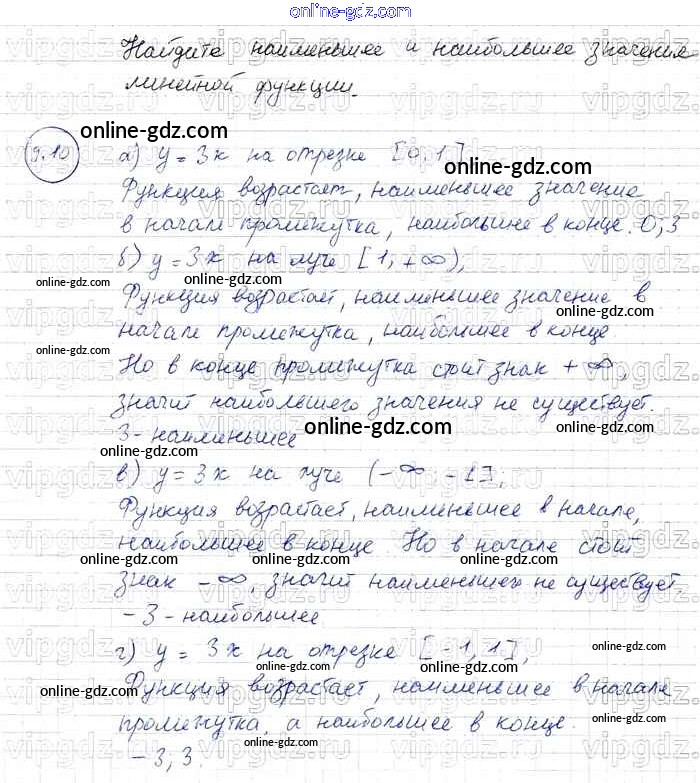 online-gdz.com
Найдите наименьшее и наибольшее значения
линейной функции.
9.10
online-gdz.com
а) y = 3x на отрезке [0,1]
online-gdz.com
Функция возрастает, наименьшее значение
в начале промежутка, наибольшее в конце. 0; 3
б) y = 3x на луче [1, +∞);
online-gdz.com
online-gdz.com
Функция возрастает, наименьшее значение в
online-gdz.com
начале промежутка, наибольшее в конце
online-gdz.com
Но в конце промежутка стоит знак +∞,
значит наибольшего значения не существует.
3 - наименьшее
online-gdz.com
в) y = 3x на луче (-∞ -1];
Функция возрастает, наименьшее в начале,
наибольшее в конце. Но в начале стоит
online-gdz.com
online-gdz.com
знак -∞, значит наименьшего не существует.
-3 - наибольшее
online-gdz.com
г) y = 3x на отрезке [-1, 1];
online-gdz.com
online-gdz.com
Функция возрастает, наименьшее в начале
online-gdz.com
online-gdz.com
промежутка, а наибольшее в конце.
online-gdz.com
-3; 3.
online-gdz.com
vipgdz.ru